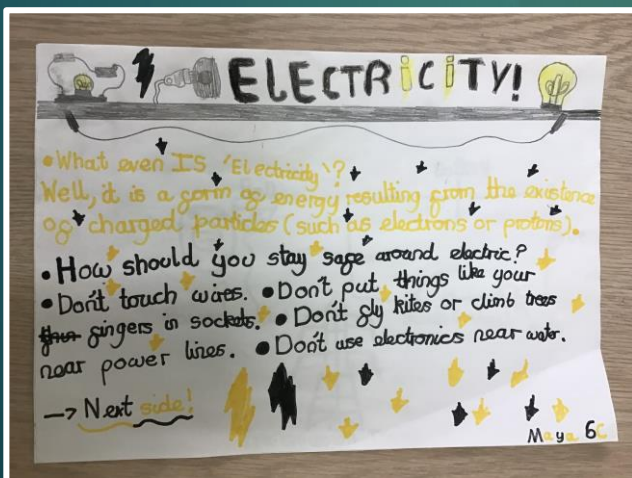 ELECTRiCiTY!
• What even IS 'Electricity'?
Well, it is a form of energy resulting from the existence
of charged particles (such as electrons or protons).
• How should you stay safe around electric?
• Don't touch wires. • Don't put things like your
fingers in sockets. • Don't fly kites or climb trees
near power lines. • Don't use electronics near water.
→ Next side!
Maya 6C